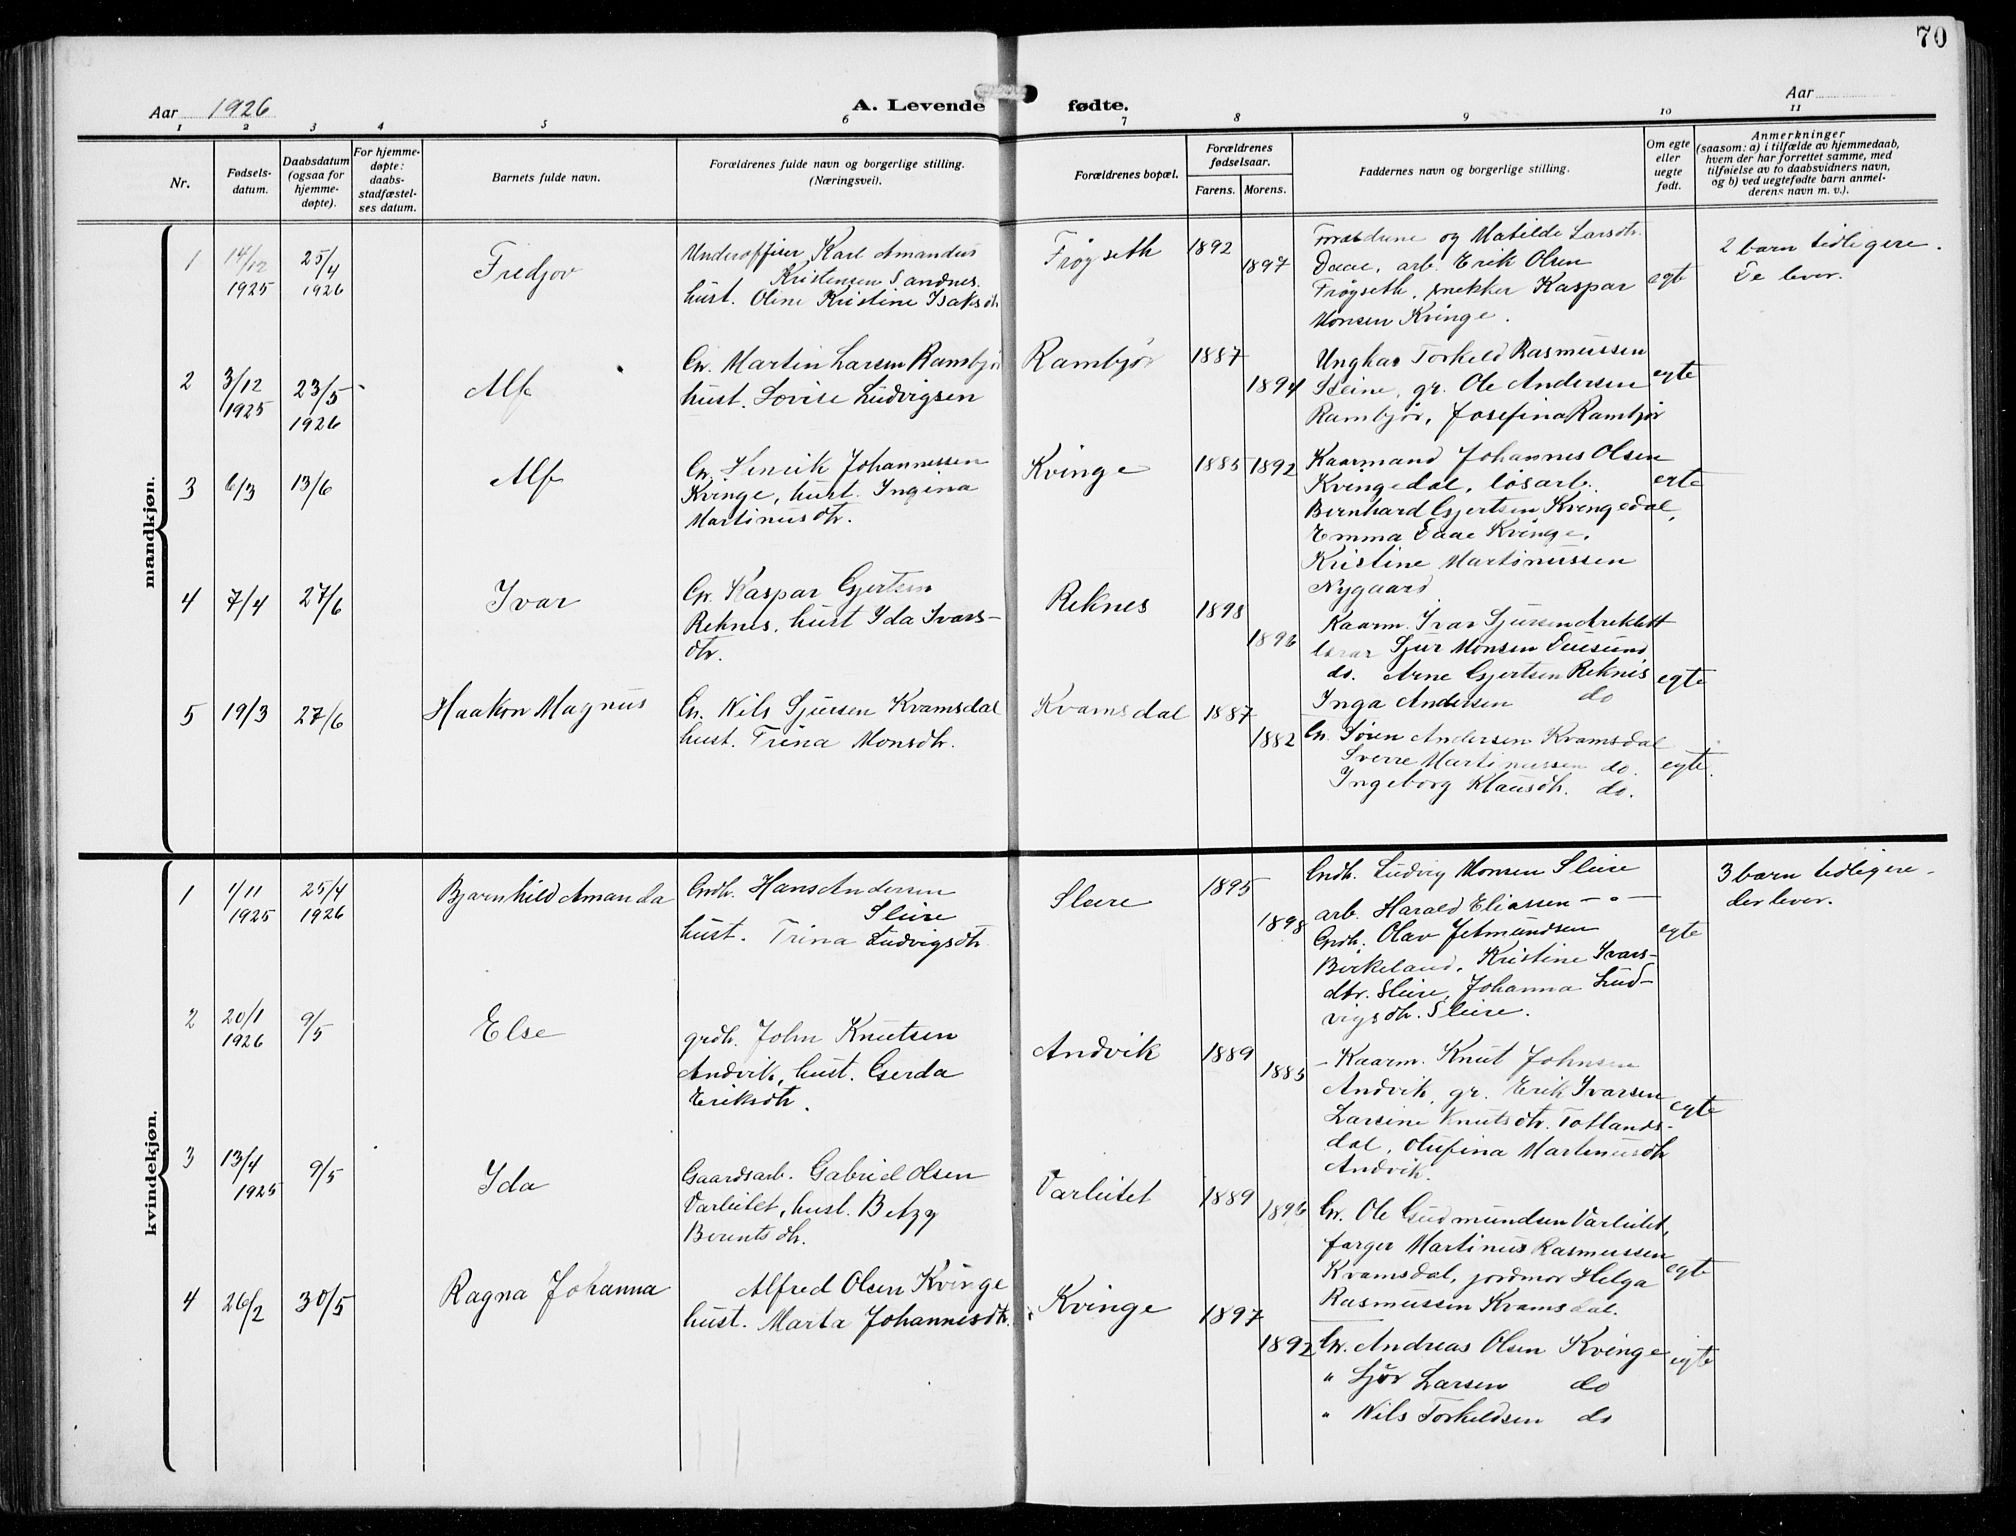 70
Aar 1926
A. Levende fødte.
Aar
1 2 3 4 5 6 7 8 9 10 11
Nr.
Fødsels-
datum.
Daabsdatum
(ogsaa for
hjemme-
døpte).
For hjemme-
døpte:
daabs-
stadfæstel-
ses datum.
Barnets fulde navn.
Forældrenes fulde navn og borgerlige stilling.
(Næringsvei).
Forældrenes bopæl.
Forældrenes
fødselsaar.
Farens. Morens.
Faddernes navn og borgerlige stilling.
Om egte
eller
uegte
født.
Anmerkninger
(saasom: a) i tilfælde av hjemmedaab,
hvem der har forrettet samme, med
tilføielse av to daabsvidners navn,
og b) ved uegtefødte barn anmel-
derens navn m. v.).
mandkjøn.
1
14/12
1925
25/4
1926
Fredjov
Underoffiser Karl Amandus
Kristensen Sandnes.
hust. Oline Kristine Isaksdtr
Frøyseth
1892
1897
Forældrene og Matilde Larsdtr.
Daae, arb. Erik Olsen
Frøyseth, snekker Kaspar
Monsen Kvinge.
egte
2 barn tidligere.
De lever.
2
3/12
1925
23/5
1926
Alf
Gr. Martin Larsen Rambjør
hust. Lovise Ludvigsen
Rambjør
1887
1894
Ungkar Torkeld Rasmussen
Steine, gr. Ole Andersen
Rambjør, Josefina Rambjør
egte
3
6/3
13/6
Alf
Gr. Henrik Johannessen
Kvinge, hust. Ingina
Martinusdtr.
Kvinge
1885
1892
Kaarmand Johannes Olsen
Kvingedal, løsarb.
Bernhard Gjertsen Kvingedal,
Emma Daae Kvinge,
Kristine Martinussen
Nygaard
egte
4
7/4
27/6
Ivar
Gr. Kaspar Gjertsen
Reknes, hust Ida Ivars-
dtr.
Reknes
1898
1896
Kaarm. Ivar Sjursen Areklett
lærar Sjur Monsen Duesund
do. Arne Gjertsen Reknes
Inga Andersen do
egte
5
19/3
27/6
Haakon Magnus
Gr. Nils Sjursen Kvamsdal
hust. Trina Monsdtr.
Kvamsdal
1887
1882
Gr. Søren Andersen Kvamsdal
Sverre Martinussen do.
Ingeborg Klausdtr. do.
egte.
kvindekjøn.
1
1/11
1925
25/4
1926
Bjarnhild Amanda
Grdh. Hans Andersen
Sleire
hust. Trina Ludvigsdtr
Sleire
1895
1898
Grdh. Ludvig Monsen Sleire
arb. Harald Eliassen — " —
Grdh. Olav Jetmundsen
Birkeland, Kristine Ivars-
dtr. Sleire, Johanna Lud-
vigsdtr. Sleire.
egte
3 barn tidligere.
der lever.
2
20/1
1926
9/5
Else
grdh. John Knutsen
Andvik, hust. Gerda
Eriksdtr.
Andvik
1889
1885
- Kaarm. Knut Johnsen
Andvik, gr. Erik Ivarsen
Larsine Knutsdtr. Totlands-
dal, Olufina Martinusdtr
Andvik.
egte
3
13/4
1925
9/5
Ida
Gaardsarb. Gabriel Olsen
Varleitet, hust. Betzy
Berentsdtr.
Varleitet
1889
1896
Gr. Ole Gudmundsen Varleitet,
farger Martinus Rasmussen
Kvamsdal, jordmor Helga
Rasmussen Kvamsdal.
egte
4
26/2
30/5
Ragna Johanna
Alfred Olsen Kvinge
hust. Marta Johannesdtr.
Kvinge
1897
1892
Gr. Andreas Olsen Kvinge
" Sjør Larsen do
" Nils Torkeldsen do
egte